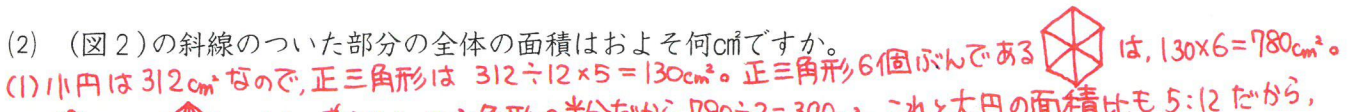 (2) （図2）の斜線のついた部分の全体の面積はおよそ何cm²ですか。
(1)小円は312cm²なので,正三角形は 312÷12×5=130cm²。正三角形6個ぶんである は,130×6=780cm²。
半分だから 780÷2=390 これと大円の面積比も5:12だから,